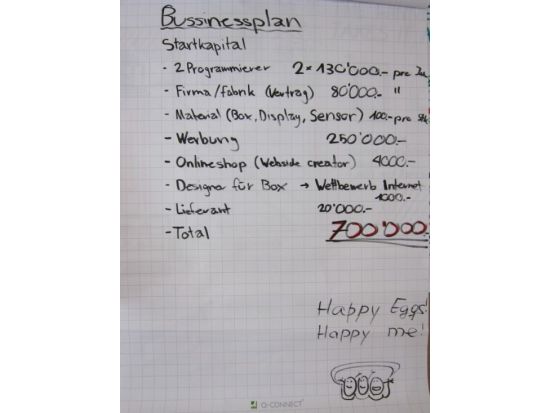 Bussinessplan
Startkapital
- 2 Programmierer 2× 130'000.- pro
- Firma/fabrik (Vertrag) 80'000.- "
- Material (Box, Display, Sensor) 100.- pro Stk
- Werbung 250'000.-
- Onlineshop (Webside creator) 4000.-
- Designe für Box → Wettbewerb Internet
1000.-
- Lieferant 20'000.-
- Total 700'000.-
Happy Eggs!
Happy me!
Q-CONNECT